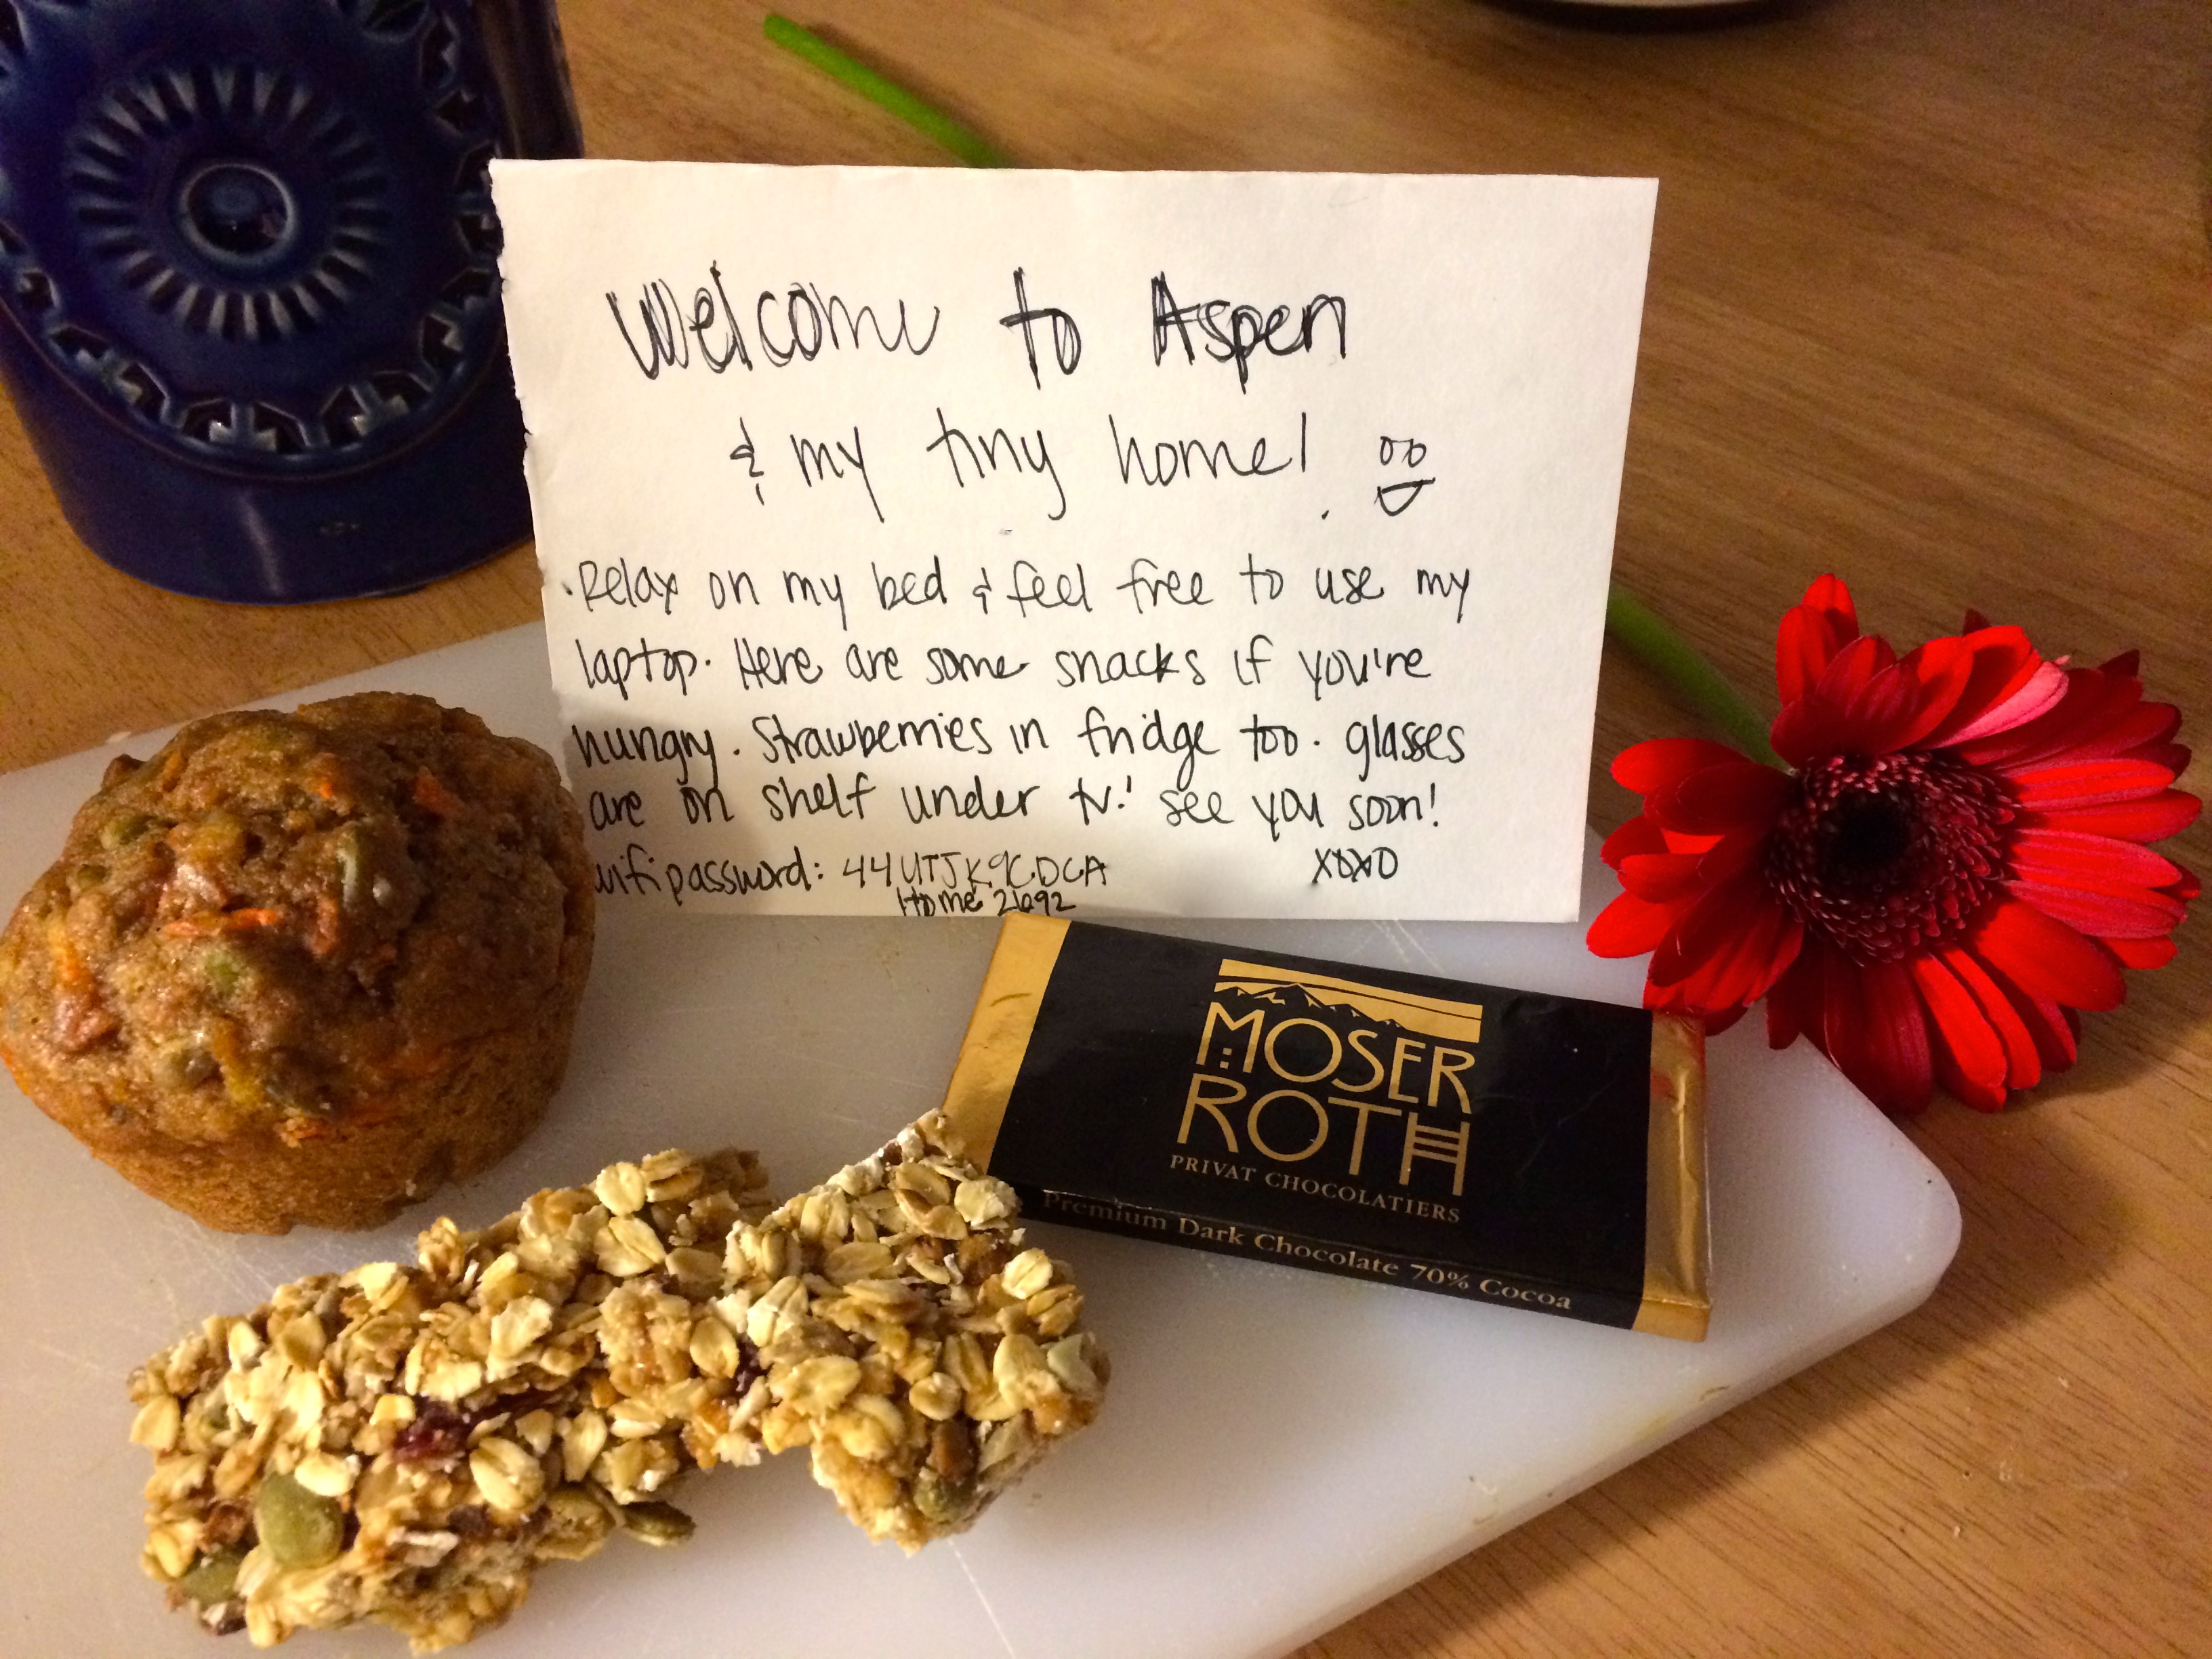 Welcome to Aspen
& my tiny home!
· Relax on my bed & feel free to use my
laptop. Here are some snacks if you're
hungry. Strawberries in fridge too. glasses
are on shelf under tv! see you soon!
wifi password: 44UTJK9CDCA XOXO
Home 2692
MOSER
ROTH
PRIVAT CHOCOLATIERS
Premium Dark Chocolate 70% Cocoa